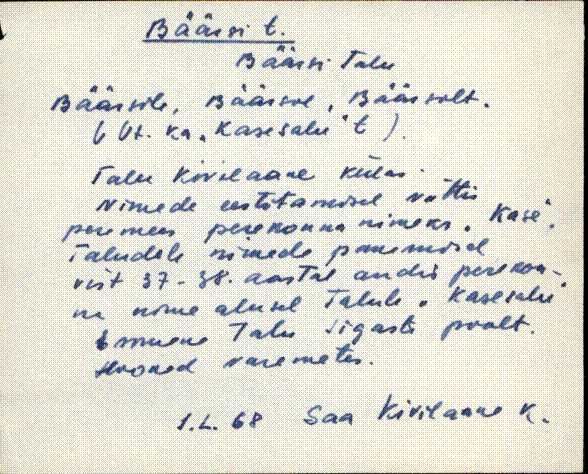 Bäärsi t.
Bäärsi Talu
Bäärsile, Bäärsве, Bäärsilt.
(Vt. ka „Kasesalu" t).
Talu Kivilaane külas.
Nimede eestistamisel võttis
peremees perekonna nimeks „Kase".
Taludele nimede panemisel
vist 37-38. aastal andis perekon-
na nime alusel Talule „Kasesalu"
Esimene Talu Sigaste poolt.
Hooned varemetes.
1.L. 68 Saa Kivilaane k.